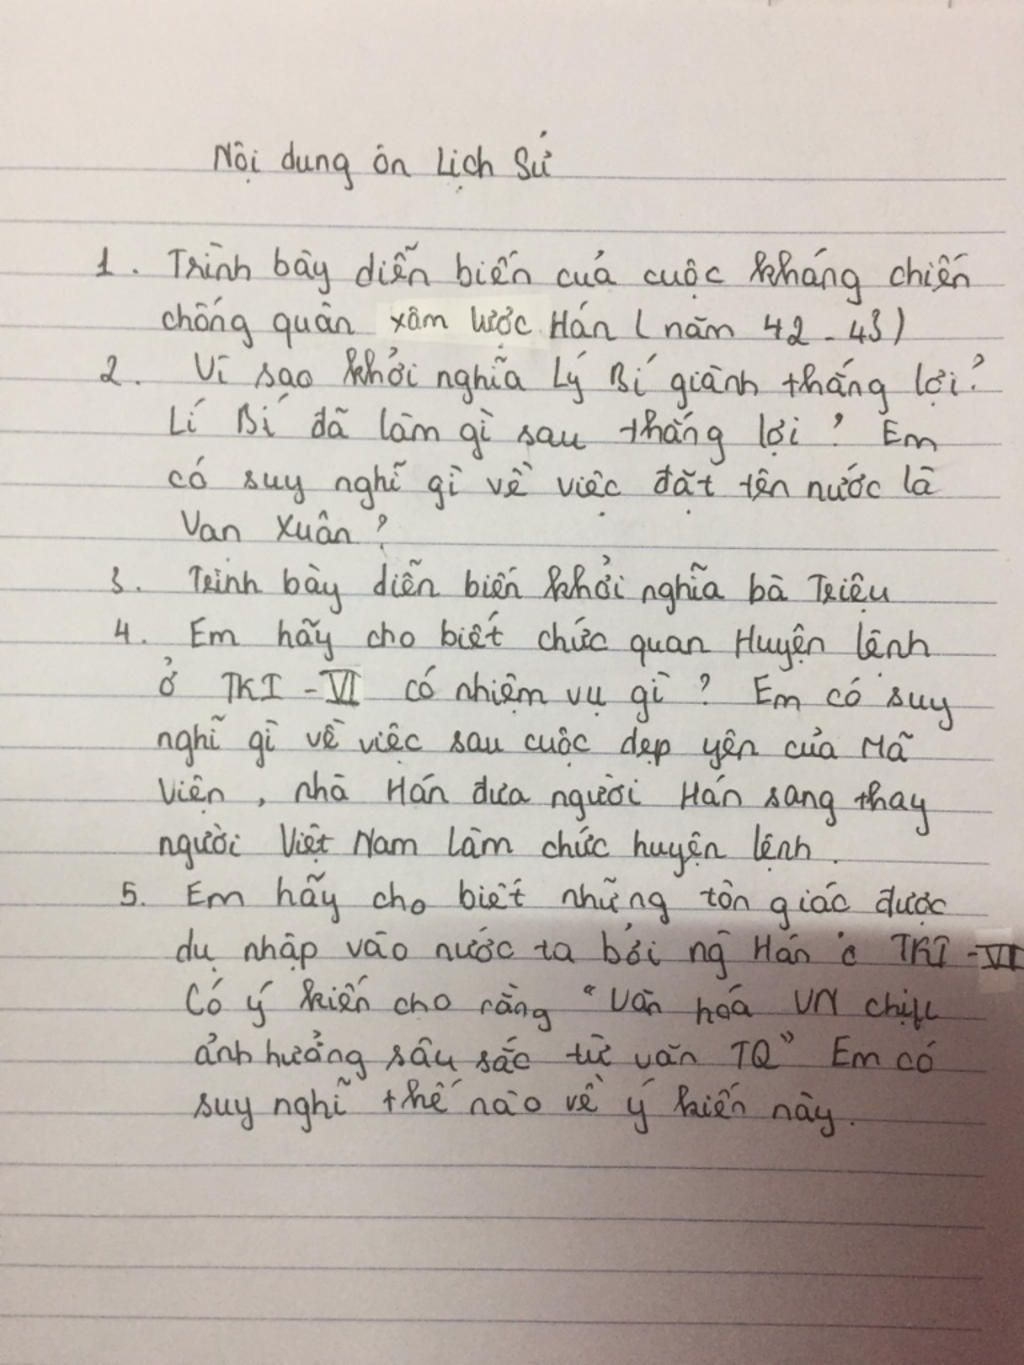 Nội dung ôn Lịch Sử
1. Trình bày diễn biến của cuộc kháng chiến
chống quân xâm lược Hán (năm 42 - 43)
2. Vì sao khởi nghĩa Lý Bí giành thắng lợi?
Lí Bí đã làm gì sau thắng lợi? Em
có suy nghĩ gì về việc đặt tên nước là
Vạn Xuân?
3. Trình bày diễn biến khởi nghĩa bà Triệu
4. Em hãy cho biết chức quan Huyện lệnh
ở TKI - VI có nhiệm vụ gì? Em có suy
nghĩ gì về việc sau cuộc dẹp yên của Mã
Viện, nhà Hán đưa người Hán sang thay
người Việt Nam làm chức huyện lệnh.
5. Em hãy cho biết những tôn giác được
du nhập vào nước ta bởi ng Hán ở TKI - VI
Có ý kiến cho rằng "Văn hoá VN chịu
ảnh hưởng sâu sắc từ văn TQ" Em có
suy nghĩ thế nào về ý kiến này.